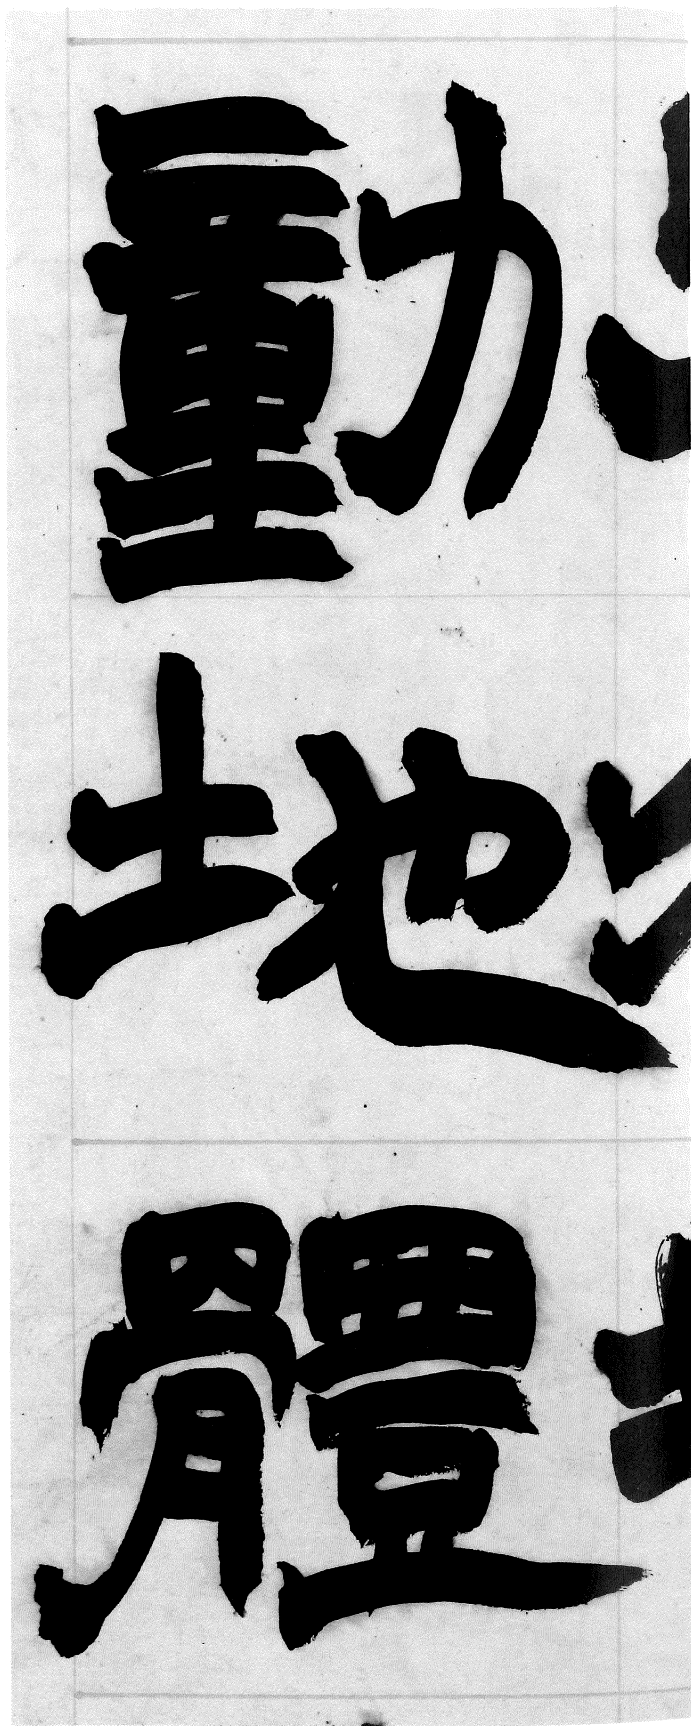 動地體